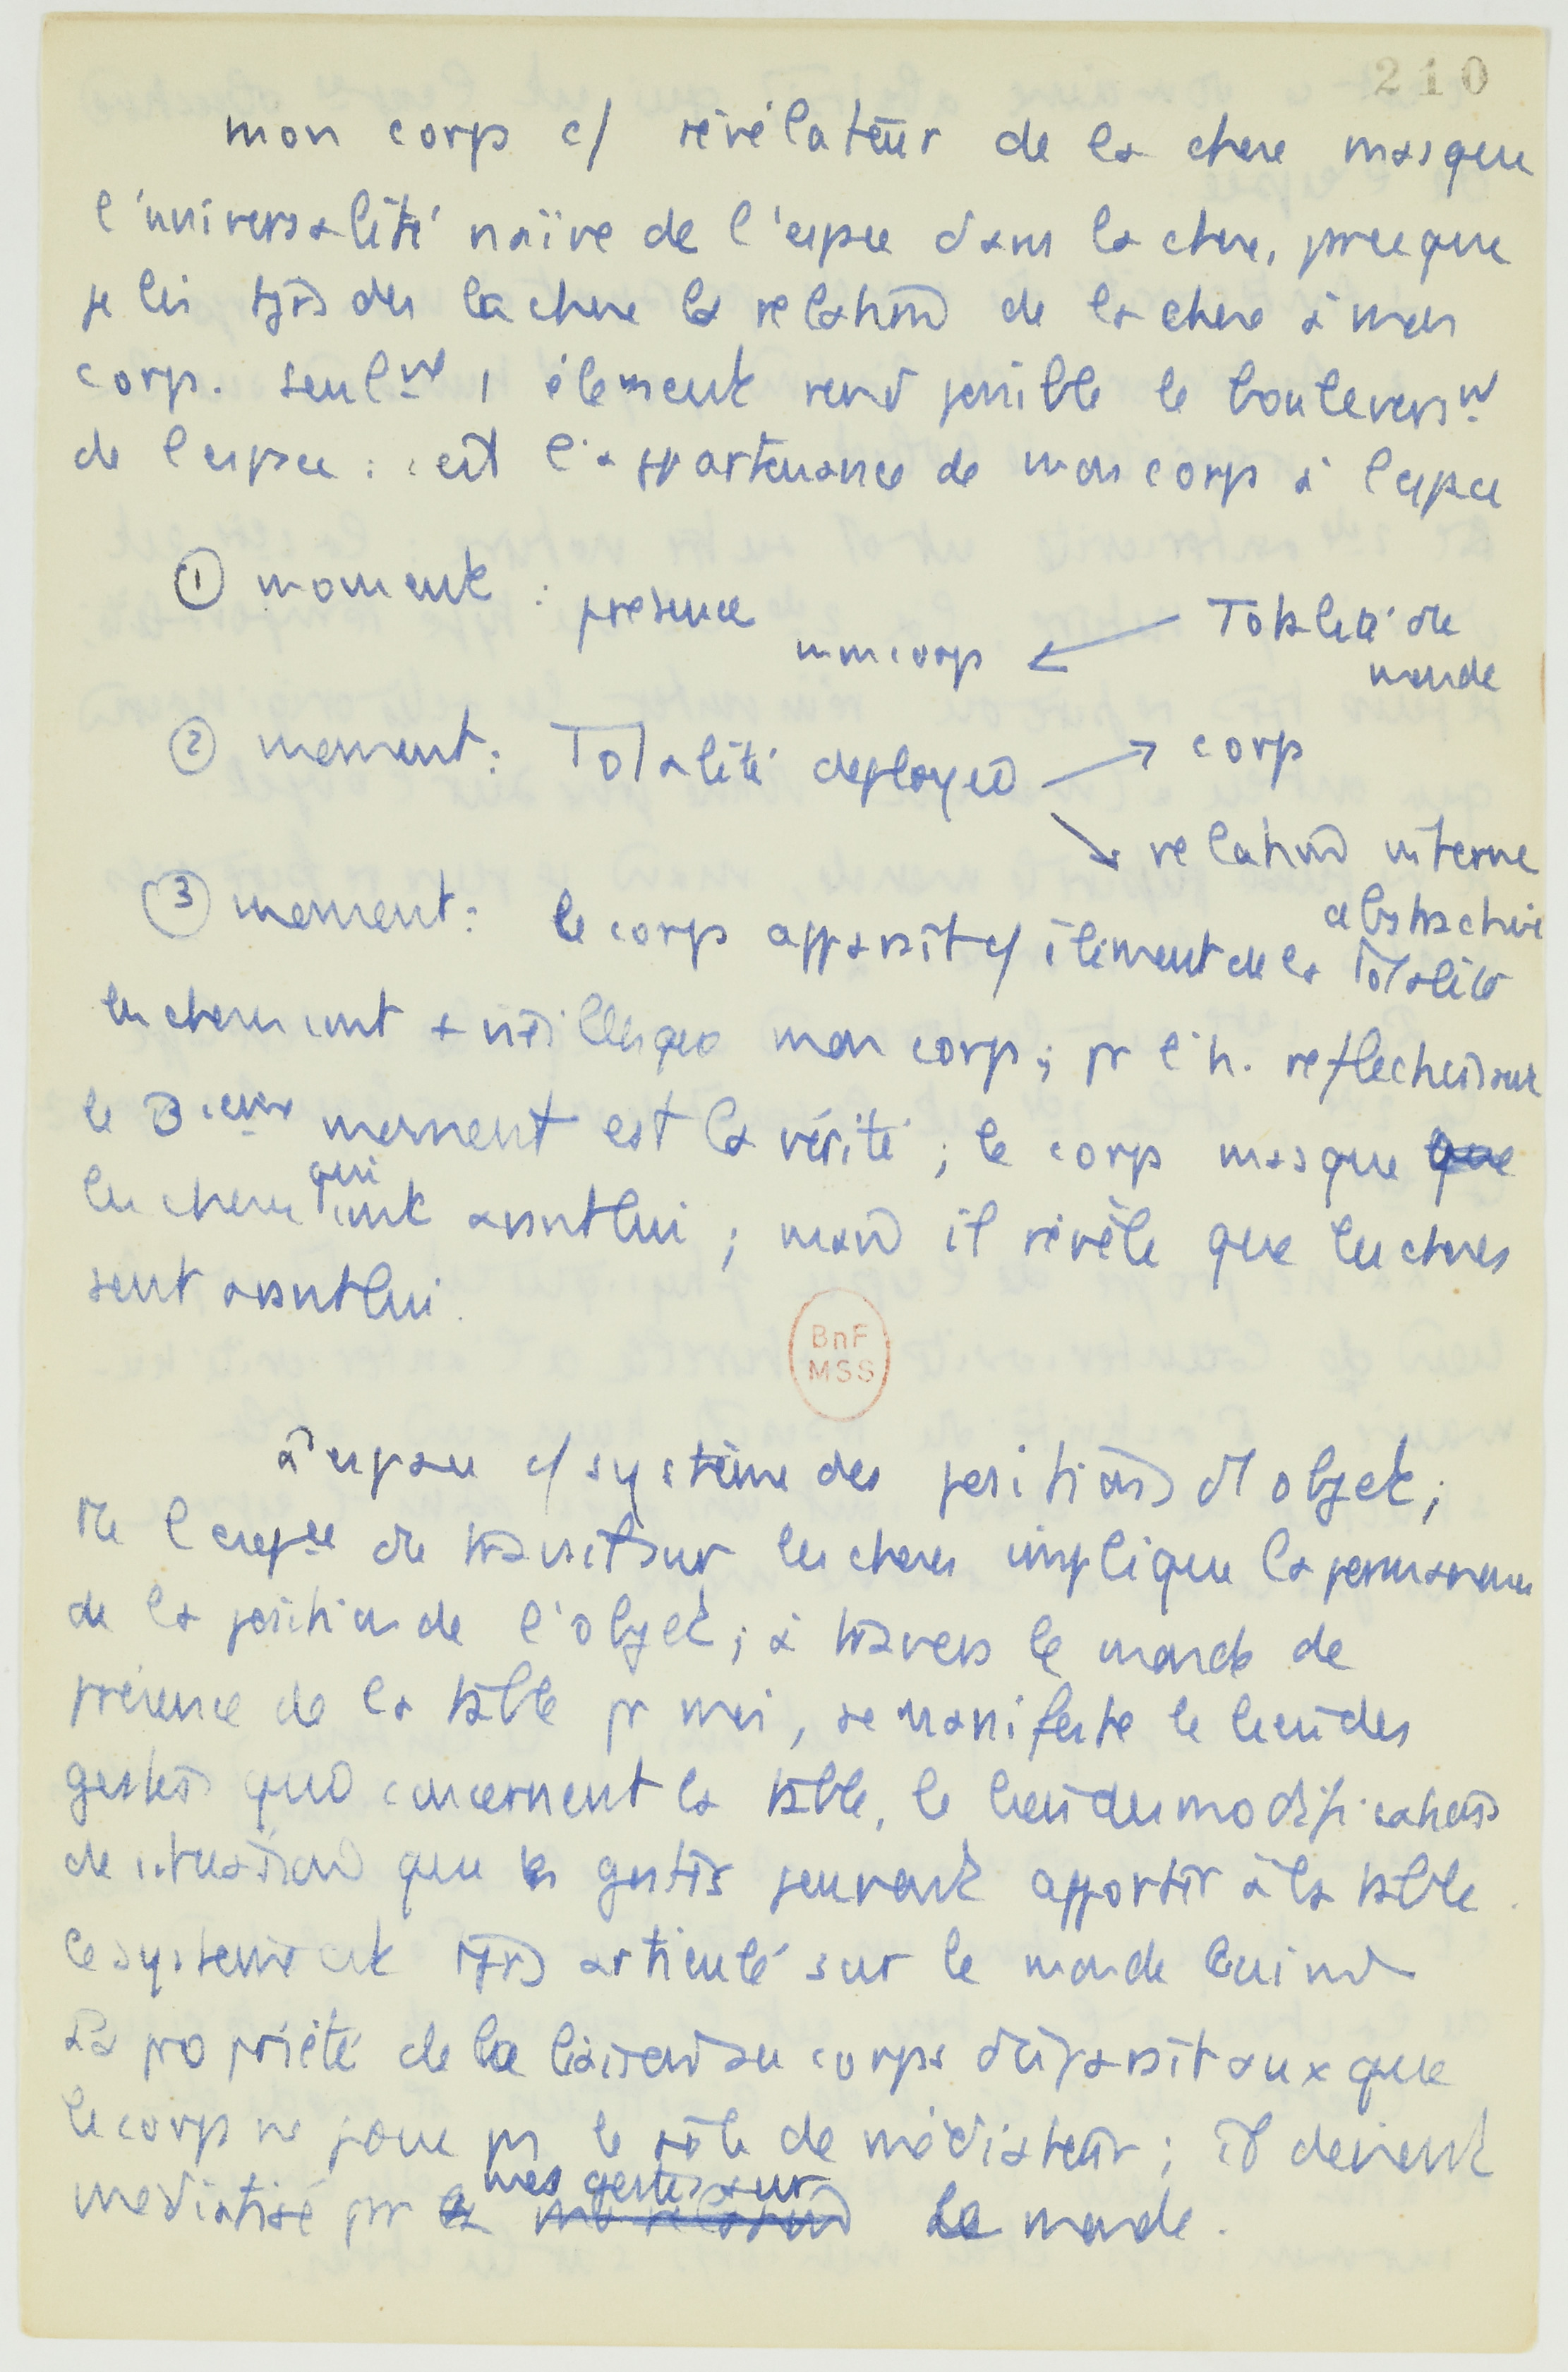 210
mon corps c/ révélateur de la chose masque
l'universalité naïve de l'espace dans la chose, parce que
je lis tjrs ds la chose la relation de la chose à mon
corps. seulmt 1 élément rend possible le bouleversmt
de l'espace : c'est l'appartenance de mon corps à l'espace
① moment : présence mon corps ← Totalité du
monde
② moment : Totalité déployée → corp
→ relation interne
abstractive
③ moment : le corps apparaît c/ élément de la Totalité
les choses sont que mon corps ; pr l'h. réfléchissant
le 3ieme moment est la vérité ; le corps masque que
les choses qui sont avant lui ; mais il révèle que les choses
sont avant lui.
BnF
MSS
L'espace c/ système des positions d'1 objet ;
de l'espace du travail sur les choses implique la permanence
de la position de l'objet ; à travers le monde de
présence de la table pr moi, se manifeste le lieu des
gestes qui concernent la table, le lieu des modifications
de situation que les gestes peuvent apporter à la table.
ce système est tjrs articulé sur le monde
La propriété de la liaison au corps disparaît aux que
le corps ne joue pas le rôle de médiateur ; il devient
médiatisé par mes gestes sur le monde.